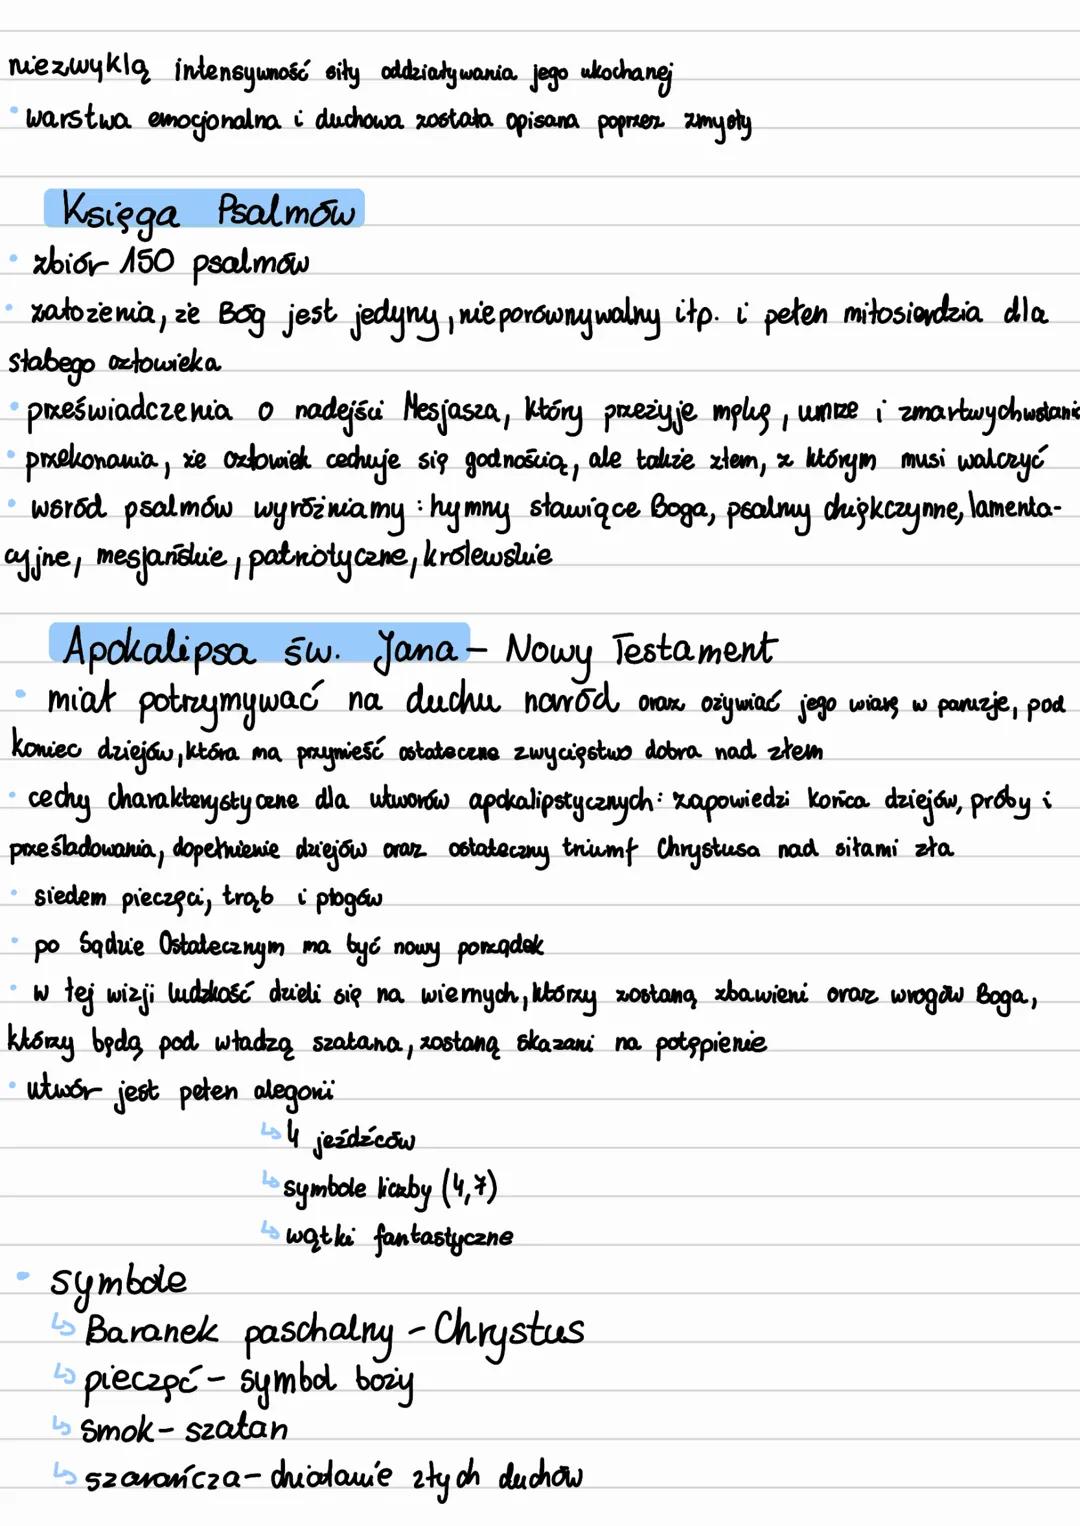 niezwykłą intensywność siły oddziaływania jego ukochanej
• warstwa emocjonalna i duchowa została opisana poprzez zmysły
Księga Psalmów
• zbiór 150 psalmów
• założenia, że Bóg jest jedyny, nieporównywalny itp. i pełen miłosierdzia dla
słabego człowieka
• przeświadczenia o nadejści Mesjasza, który przeżyje mękę, umrze i zmartwychwstanie
• przekonania, że człowiek cechuje się godnością, ale także złem, z którym musi walczyć
• wśród psalmów wyróżniamy: hymny sławiące Boga, psalmy dziękczynne, lamenta-
cyjne, mesjańskie, patriotyczne, królewskie
Apokalipsa św. Jana - Nowy Testament
• miał potrzymywać na duchu naród oraz ożywiać jego wiarę w paruzje, pod
koniec dziejów, która ma przynieść ostateczne zwycięstwo dobra nad złem
• cechy charakterystyczne dla utworów apokalipstycznych: zapowiedzi końca dziejów, próby i
prześladowania, dopełnienie dziejów oraz ostateczny triumf Chrystusa nad siłami zła
• siedem pieczęci, trąb i plogów
• po Sądzie Ostatecznym ma być nowy porządek
• w tej wizji ludzkość dzieli się na wiernych, którzy zostaną zbawieni oraz wrogów Boga,
którzy będą pod władzą szatana, zostaną skazani na potępienie
• utwór jest pełen alegorii
↳ 4 jeźdźców
↳ symbole liczby (4,7)
↳ wątki fantastyczne
• symbole
↳ Baranek paschalny - Chrystus
↳ pieczęć - symbol boży
↳ smok - szatan
↳ szarańcza - działanie złych duchów